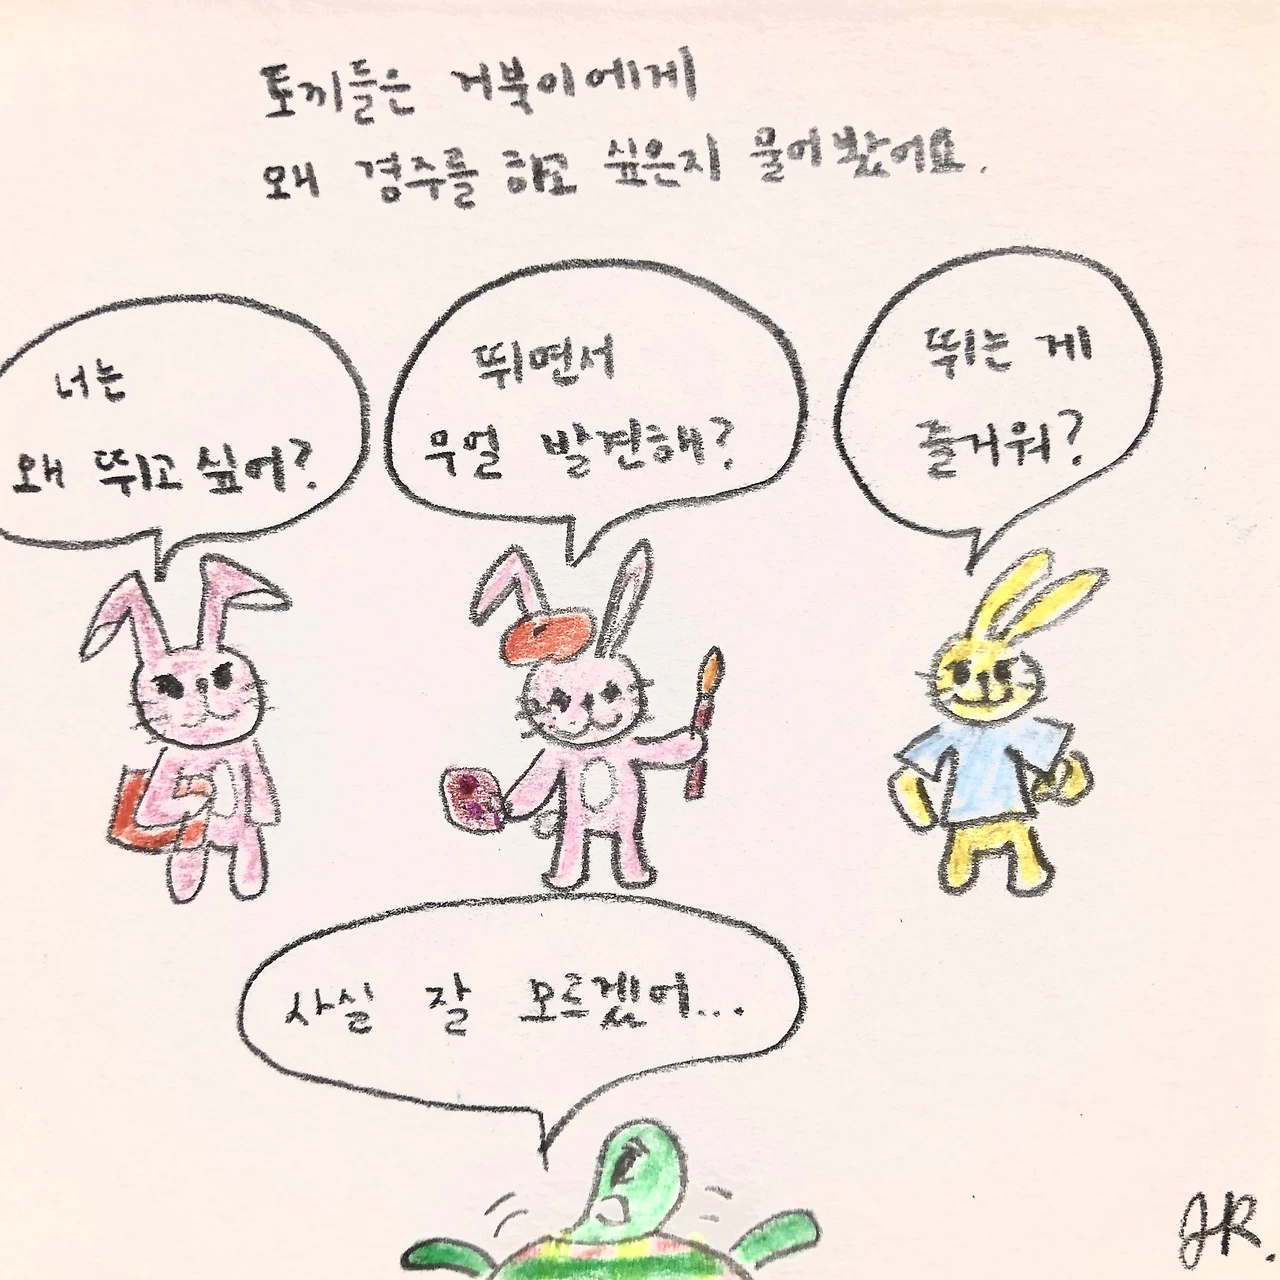 토끼들은 거북이에게
왜 경주를 하고 싶은지 물어봤어요.
너는
왜 뛰고 싶어?
뛰면서
무얼 발견해?
뛰는 게
즐거워?
사실 잘 모르겠어...
JR.